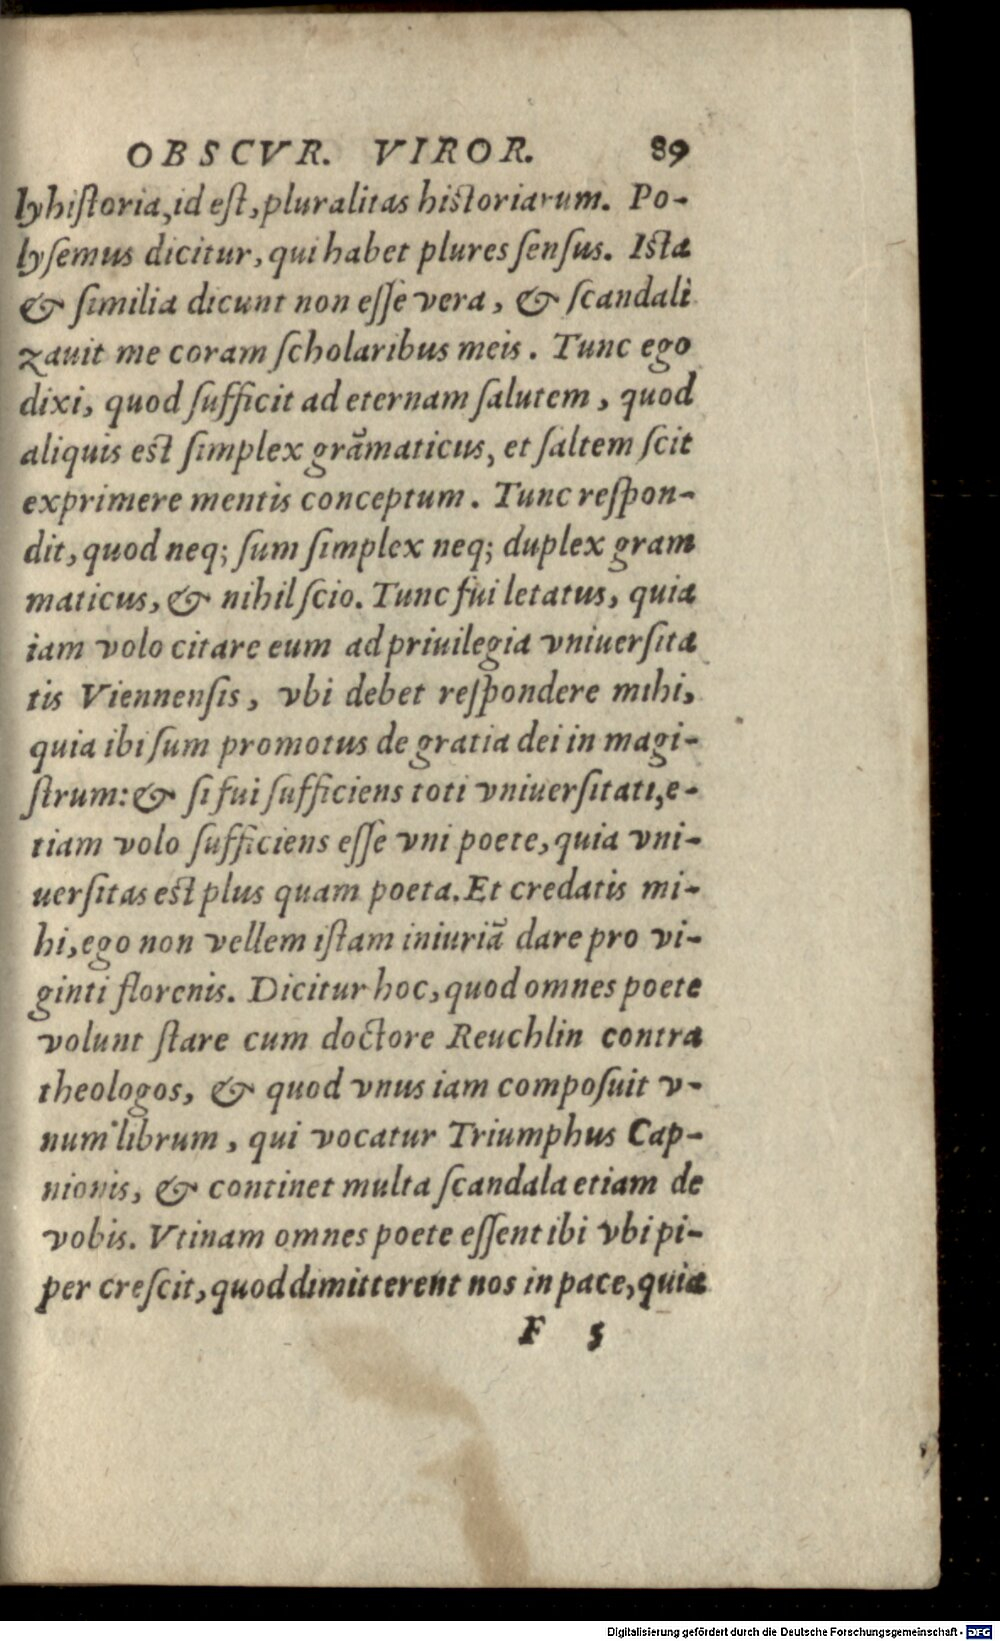 OBSCVR. VIROR. 89
lyhiſtoria, id eſt, pluralitas hiſtoriarum. Po-
lyſemus dicitur, qui habet plures ſenſus. Iſta
& ſimilia dicunt non eſſe vera, & ſcandali
zauit me coram ſcholaribus meis. Tunc ego
dixi, quod ſufficit ad eternam ſalutem, quod
aliquis eſt ſimplex grãmaticus, et ſaltem ſcit
exprimere mentis conceptum. Tunc reſpon-
dit, quod neq; ſum ſimplex neq; duplex gram
maticus, & nihil ſcio. Tunc fui letatus, quia
iam volo citare eum ad priuilegia vniuerſita
tis Viennenſis, vbi debet reſpondere mihi,
quia ibi ſum promotus de gratia dei in magi-
ſtrum: & ſi fui ſufficiens toti vniuerſitati, e-
tiam volo ſufficiens eſſe vni poete, quia vni-
uerſitas eſt plus quam poeta. Et credatis mi-
hi, ego non vellem iſtam iniuriã dare pro vi-
ginti florenis. Dicitur hoc, quod omnes poete
volunt ſtare cum doctore Reuchlin contra
theologos, & quod vnus iam compoſuit v-
num librum, qui vocatur Triumphus Cap-
nionis, & continet multa ſcandala etiam de
vobis. Vtinam omnes poete eſſent ibi vbi pi-
per creſcit, quod dimitterent nos in pace, quia
F 5
Digitalisierung gefördert durch die Deutsche Forschungsgemeinschaft - DFG